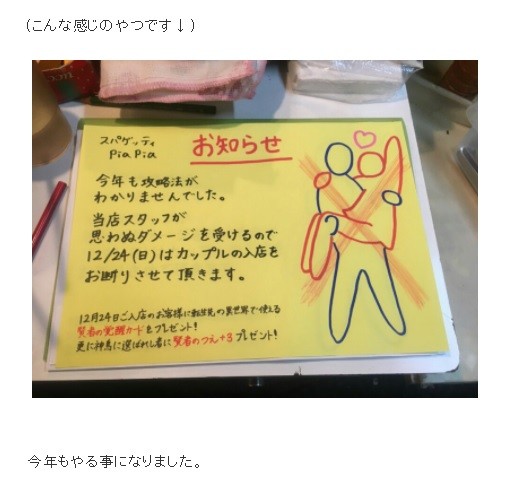 (こんな感じのやつです↓)
スパゲッティ
PiaPia
お知らせ
今年も攻略法が
わかりませんでした。
当店スタッフが
思わぬダメージを受けるので
12/24(日)はカップルの入店を
お断りさせて頂きます。
12月24日ご入店のお客様に転生先の異世界で使える
賢者の覚醒カードをプレゼント!
更に神馬に選ばれし者に賢者のつえ+3プレゼント!
今年もやる事になりました。